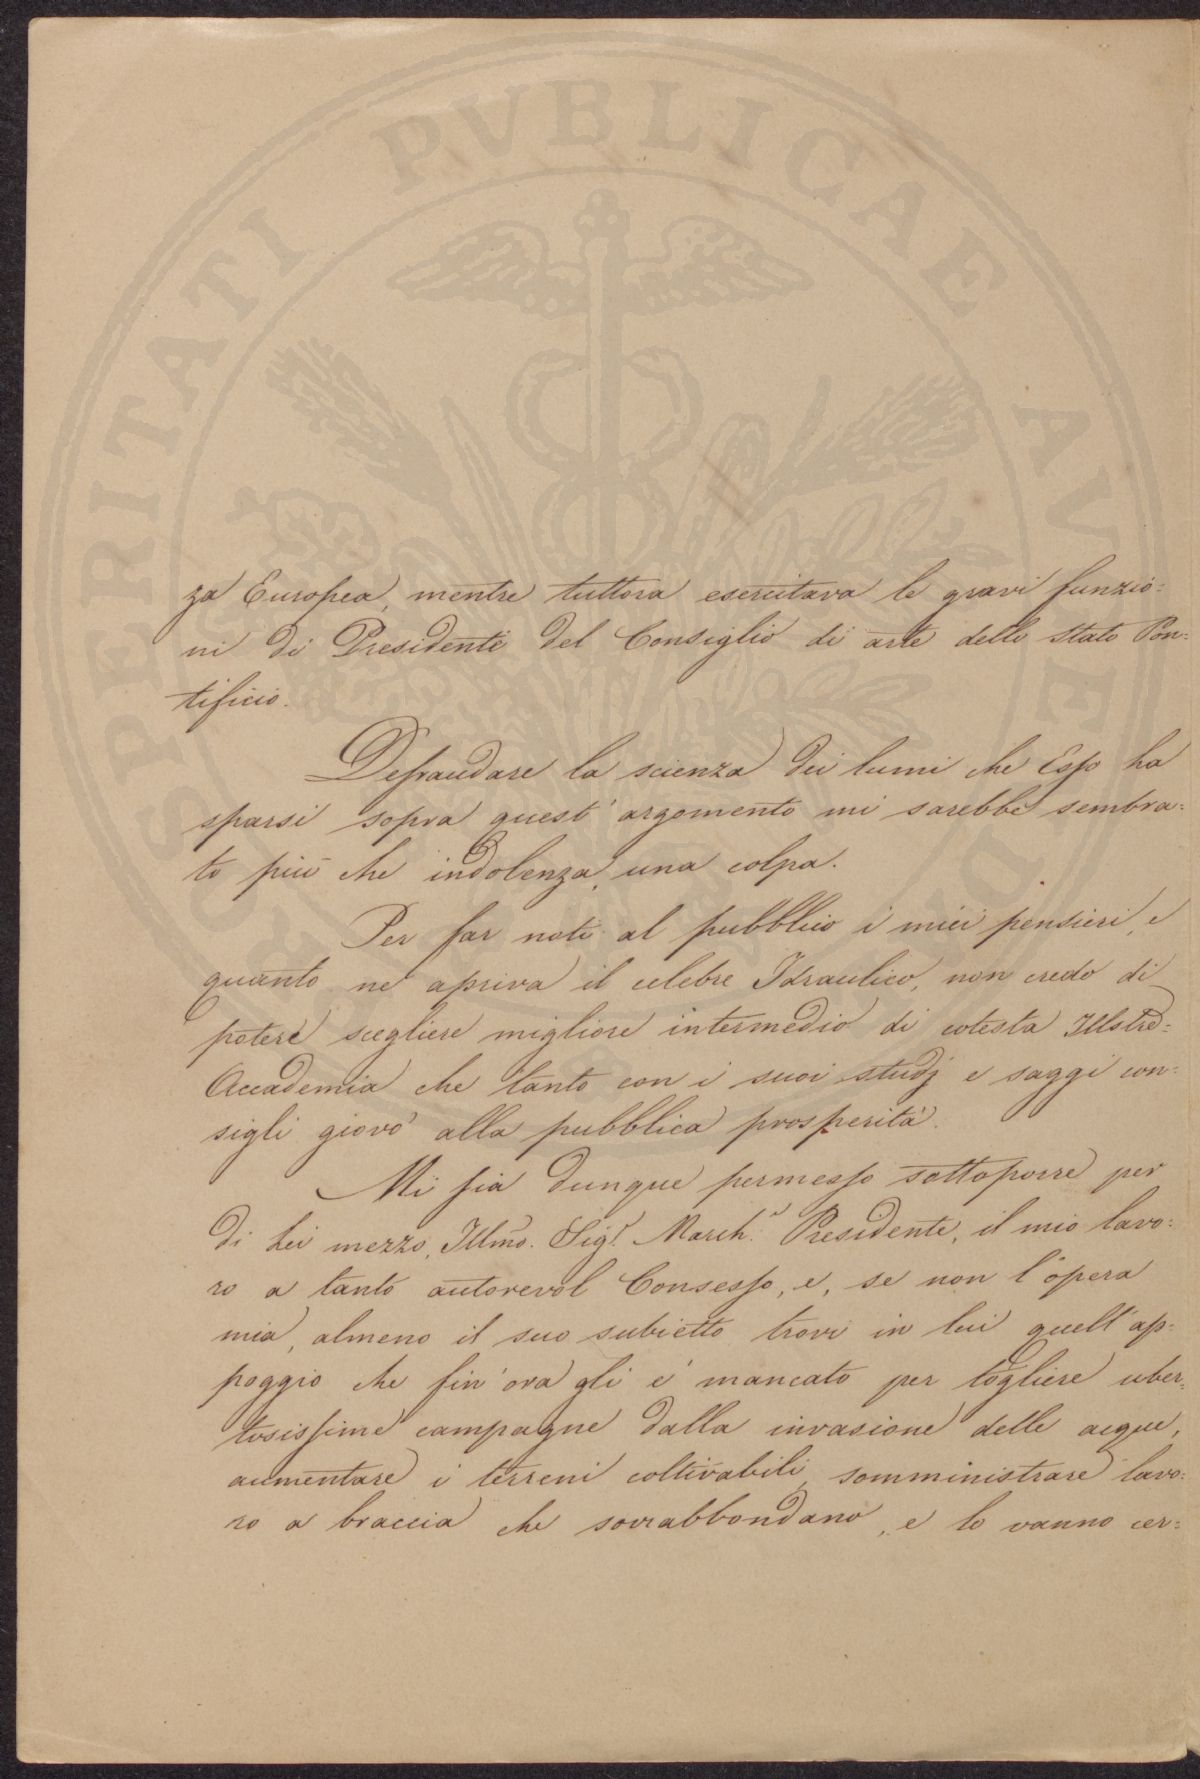 PROSPERITATI PVBLICAE AVGENDAE
za Europea, mentre tuttora esercitava le gravi funzio=
ni di Presidente del Consiglio di arte dello Stato Pon=
tificio.
Defraudare la scienza dei lumi che Esso ha
sparsi sopra quest'argomento mi sarebbe sembra=
to più che indolenza, una colpa.
Per far noti al pubblico i miei pensieri, e
quanto ne apriva il celebre Idraulico, non credo di
potere scegliere migliore intermedio di cotesta Illstre=
Accademia che tanto con i suoi studj e saggi con=
sigli giovò alla pubblica prosperità.
Mi sia dunque permesso sottoporre per
di Lei mezzo, Illmo. Sigr. March.r Presidente, il mio lavo=
ro a tanto autorevol Consesso, e, se non l'opera
mia, almeno il suo subietto trovi in lui quell'ap=
poggio che fin'ora gli è mancato per togliere uber=
tosissime campagne dalla invasione delle acque,
aumentare i terreni coltivabili, somministrare lavo=
ro a braccia che sovrabbondano, e lo vanno cer=